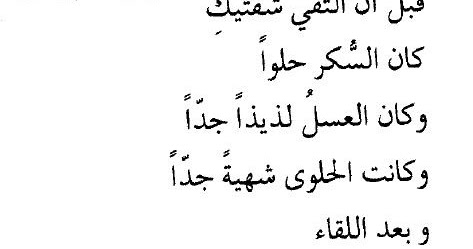 قبل أن ألتقي شفتيكِ
كان السُّكر حلواً
وكان العسلُ لذيذاً جدّاً
وكانت الحلوى شهيةً جدّاً
و بعد اللقاء